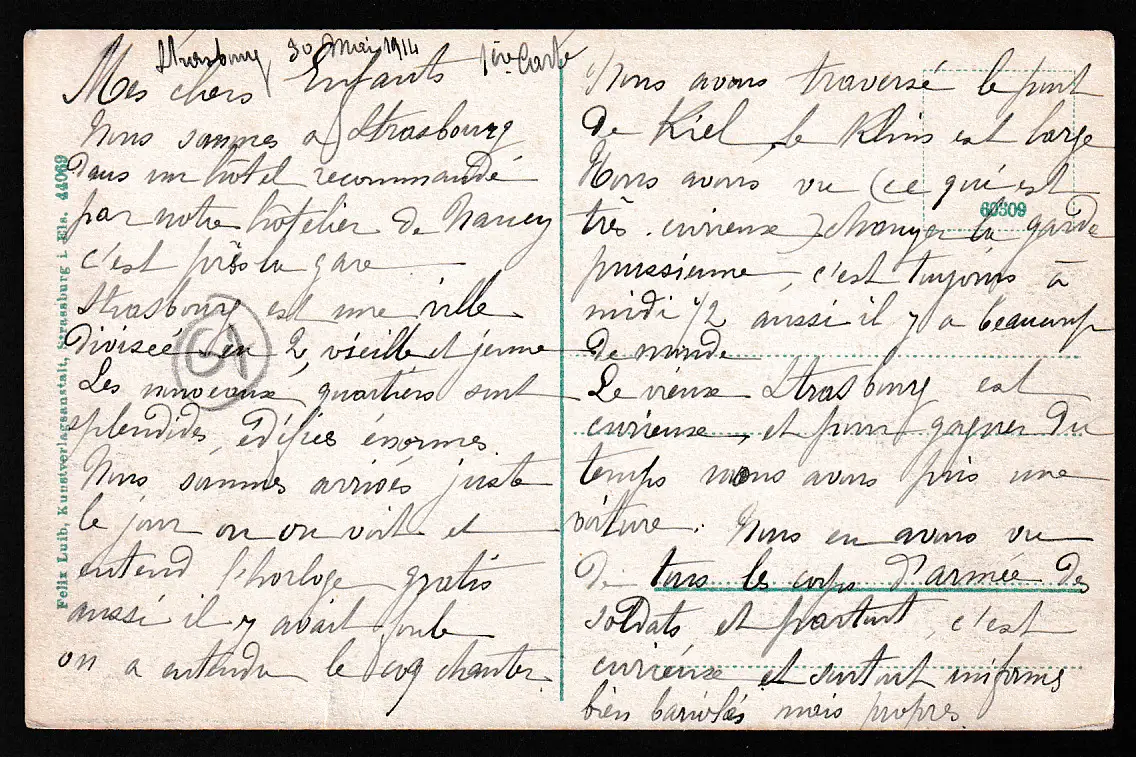 Strasbourg 30 Mai 1914 1ère Carte
Mes chers Enfants
Nous sommes a Strasbourg
Dans un hôtel recommandé
par notre hôtelier de Nancy
c'est près la gare
Strasbourg est une ville
Divisée en 2, vieille et jeune
Les nouveaux quartiers sont
splendides édifices énormes.
Nous sommes arrivés juste
le jour ou on voit et
entend l'horloge gratis
aussi il y avait foule
on a entendu le coq chanter.
Nous avons traversé le pont
de Kiel, le Rhin est large
Nous avons vu (ce qui est
très curieux) changer la garde
prussienne, c'est toujours à
midi 1/2 aussi il y a beaucoup
de monde
Le vieux Strasbourg est
curieux, et pour gagner du
temps nous avons pris une
voiture. Nous en avons vu
De tous les corps d'armée des
soldats, et partout, c'est
curieux et surtout uniformes
bien bariolés mais propres.
Felix Luib, Kunstverlagsanstalt, Strassburg i. Els. 44069
60309